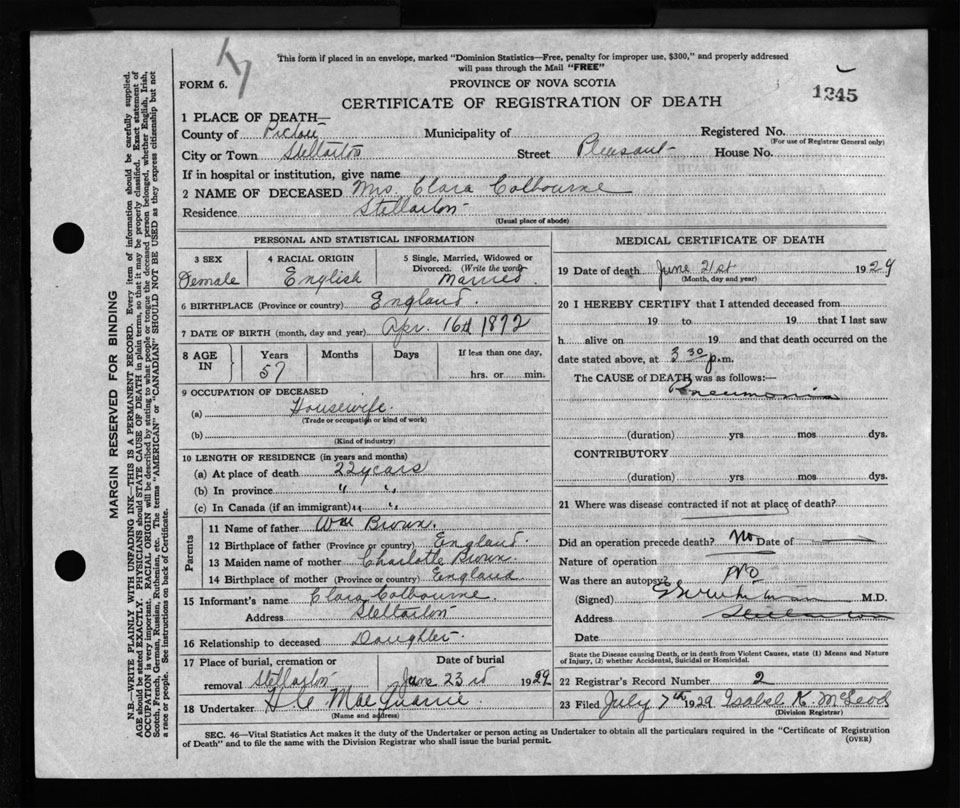 This form if placed in an envelope, marked "Dominion Statistics—Free, penalty for improper use, $300," and properly addressed
will pass through the Mail "FREE"
FORM 6.
PROVINCE OF NOVA SCOTIA
1245
CERTIFICATE OF REGISTRATION OF DEATH
1 PLACE OF DEATH—
County of Pictou Municipality of Registered No.
(For use of Registrar General only)
City or Town Stellarton Street Pleasant House No.
If in hospital or institution, give name
2 NAME OF DECEASED Mrs. Clara Colbourne
Residence Stellarton
(Usual place of abode)
PERSONAL AND STATISTICAL INFORMATION
3 SEX 4 RACIAL ORIGIN 5 Single, Married, Widowed or
Divorced. (Write the word)
Female English Married.
6 BIRTHPLACE (Province or country) England.
7 DATE OF BIRTH (month, day and year) Apr. 16th 1872
8 AGE IN Years Months Days If less than one day,
57 hrs. or min.
9 OCCUPATION OF DECEASED
(a) Housewife.
(Trade or occupation or kind of work)
(b)
(Kind of industry)
10 LENGTH OF RESIDENCE (in years and months)
(a) At place of death 22 years
(b) In province " "
(c) In Canada (if an immigrant) " "
Parents
11 Name of father Wm Brown.
12 Birthplace of father (Province or country) England.
13 Maiden name of mother Charlotte Brown
14 Birthplace of mother (Province or country) England
15 Informant's name Clara Colbourne
Address Stellarton
16 Relationship to deceased Daughter.
17 Place of burial, cremation or Date of burial
removal Stellarton June 23rd 1929
18 Undertaker H C MacQuarrie
(Name and address)
MEDICAL CERTIFICATE OF DEATH
19 Date of death June 21st 1929
(Month, day and year)
20 I HEREBY CERTIFY that I attended deceased from
19 to 19 that I last saw
h alive on 19 and that death occurred on the
date stated above, at 3 30 p.m.
The CAUSE of DEATH was as follows:—
Pneumonia
(duration) yrs mos dys.
CONTRIBUTORY
(duration) yrs mos dys.
21 Where was disease contracted if not at place of death?
Did an operation precede death? No Date of
Nature of operation
Was there an autopsy? No
(Signed) M.D.
Address
Date
State the Disease causing Death, or in death from Violent Causes, state (1) Means and Nature
of Injury, (2) whether Accidental, Suicidal or Homicidal.
22 Registrar's Record Number 2
23 Filed July 7th 1929 Isabel K. McLeod
(Division Registrar)
SEC. 46—Vital Statistics Act makes it the duty of the Undertaker or person acting as Undertaker to obtain all the particulars required in the "Certificate of Registration
of Death" and to file the same with the Division Registrar who shall issue the burial permit.
(OVER)
MARGIN RESERVED FOR BINDING
N.B.—WRITE PLAINLY WITH UNFADING INK—THIS IS A PERMANENT RECORD. Every item of information should be carefully supplied.
AGE should be stated EXACTLY. PHYSICIANS should STATE CAUSE OF DEATH in plain terms, so that it may be properly classified. Exact statement of
OCCUPATION is very important. RACIAL ORIGIN will be described by stating to what people or tongue the deceased person belonged, whether English, Irish,
Scotch, French, German, Russian, Ruthenian, etc. The terms "AMERICAN" or "CANADIAN" SHOULD NOT BE USED as they express citizenship but not
a race or people. See instructions on back of Certificate.